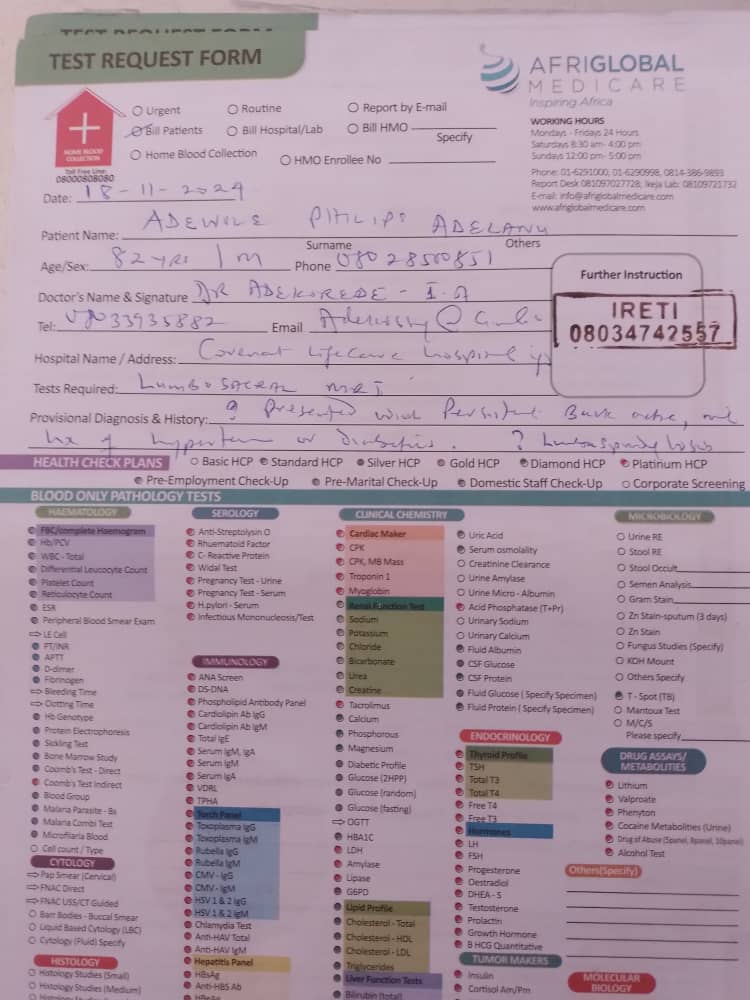 TEST REQUEST FORM
AFRIGLOBAL
MEDICARE
Inspiring Africa
Urgent
Routine
Report by E-mail
Bill Patients
Bill Hospital/Lab
Bill HMO
Specify
Home Blood Collection
HMO Enrollee No
HOME BLOOD
COLLECTION
Toll Free Line:
08000808080
WORKING HOURS
Mondays - Fridays 24 Hours
Saturdays 8:30 am- 4:00 pm
Sundays 12:00 pm- 5:00 pm
Phone: 01-6291000, 01-6290998, 0814-386-9893
Report Desk 081097027728, Ikeja Lab: 08109721732
E-mail: info@afriglobalmedicare.com
www.afriglobalmedicare.com
Date: 18-11-2024
Patient Name: ADEWOLE PHILIPS ADELANU
Surname
Others
Age/Sex: 82 YRS / M Phone 08028500851
Doctor's Name & Signature DR ADEKOREDE - I.A
Tel: Email
Hospital Name / Address: Covenant Lifecare hospital
Tests Required: LUMBOSACRAL MRI
Provisional Diagnosis & History: Presented with Persistent Back ache,
hx of hypertension or diabetes. ? Lumbospondylosis
Further Instruction
IRETI
08034742557
HEALTH CHECK PLANS
Basic HCP
Standard HCP
Silver HCP
Gold HCP
Diamond HCP
Platinum HCP
Pre-Employment Check-Up
Pre-Marital Check-Up
Domestic Staff Check-Up
Corporate Screening
BLOOD ONLY PATHOLOGY TESTS
HAEMATOLOGY
FBC/complete Haemogram
Hb/PCV
WBC - Total
Differential Leucocyte Count
Platelet Count
Reticulocyte Count
ESR
Peripheral Blood Smear Exam
LE Cell
PT/INR
APTT
D-dimer
Fibrinogen
Bleeding Time
Clotting Time
Hb Genotype
Protein Electrophoresis
Sickling Test
Bone Marrow Study
Coomb's Test - Direct
Coomb's Test Indirect
Blood Group
Malaria Parasite - Bs
Malaria Combi Test
Microfilaria Blood
Cell count / Type
CYTOLOGY
Pap Smear (Cervical)
FNAC Direct
FNAC USS/CT Guided
Barr Bodies - Buccal Smear
Liquid Based Cytology (LBC)
Cytology (Fluid) Specify
HISTOLOGY
Histology Studies (Small)
Histology Studies (Medium)
SEROLOGY
Anti-Streptolysin O
Rhuematoid Factor
C- Reactive Protein
Widal Test
Pregnancy Test - Urine
Pregnancy Test - Serum
H.pylori - Serum
Infectious Mononucleosis/Test
IMMUNOLOGY
ANA Screen
DS-DNA
Phospholipid Antibody Panel
Cardiolipin Ab IgG
Cardiolipin Ab IgM
Total IgE
Serum IgM, IgA
Serum IgM
Serum IgA
VDRL
TPHA
Torch Panel
Toxoplasma IgG
Toxoplasma IgM
Rubella IgG
Rubella IgM
CMV - IgG
CMV - IgM
HSV 1 & 2 IgG
HSV 1 & 2 IgM
Chlamydia Test
Anti-HAV Total
Anti-HAV IgM
Hepatitis Panel
HBsAg
Anti-HBS Ab
HBeAg
CLINICAL CHEMISTRY
Cardiac Maker
CPK
CPK, MB Mass
Troponin 1
Myoglobin
Renal Function Test
Sodium
Potassium
Chloride
Bicarbonate
Urea
Creatine
Tacrolimus
Calcium
Phosphorous
Magnesium
Diabetic Profile
Glucose (2HPP)
Glucose (random)
Glucose (fasting)
OGTT
HBA1C
LDH
Amylase
Lipase
G6PD
Lipid Profile
Cholesterol - Total
Cholesterol - HDL
Cholesterol - LDL
Triglycerides
Liver Function Tests
Bilirubin (total)
Uric Acid
Serum osmolality
Creatinine Clearance
Urine Amylase
Urine Micro - Albumin
Acid Phosphatase (T+Pr)
Urinary Sodium
Urinary Calcium
Fluid Albumin
CSF Glucose
CSF Protein
Fluid Glucose ( Specify Specimen)
Fluid Protein ( Specify Specimen)
ENDOCRINOLOGY
Thyroid Profile
TSH
Total T3
Total T4
Free T4
Free T3
Hormones
LH
FSH
Progesterone
Oestradiol
DHEA - S
Testosterone
Prolactin
Growth Hormone
B HCG Quantitative
TUMOR MAKERS
Insulin
Cortisol Am/Pm
MICROBIOLOGY
Urine RE
Stool RE
Stool Occult
Semen Analysis
Gram Stain
Zn Stain-sputum (3 days)
Zn Stain
Fungus Studies (Specify)
KOH Mount
Others Specify
T - Spot (TB)
Mantoux Test
M/C/S
Please specify
DRUG ASSAYS/
METABOLITIES
Lithium
Valproate
Phenyton
Cocaine Metabolities (Urine)
Drug of Abuse (5panel, 8panel, 10panel)
Alcohol Test
Others(Specify)
MOLECULAR
BIOLOGY